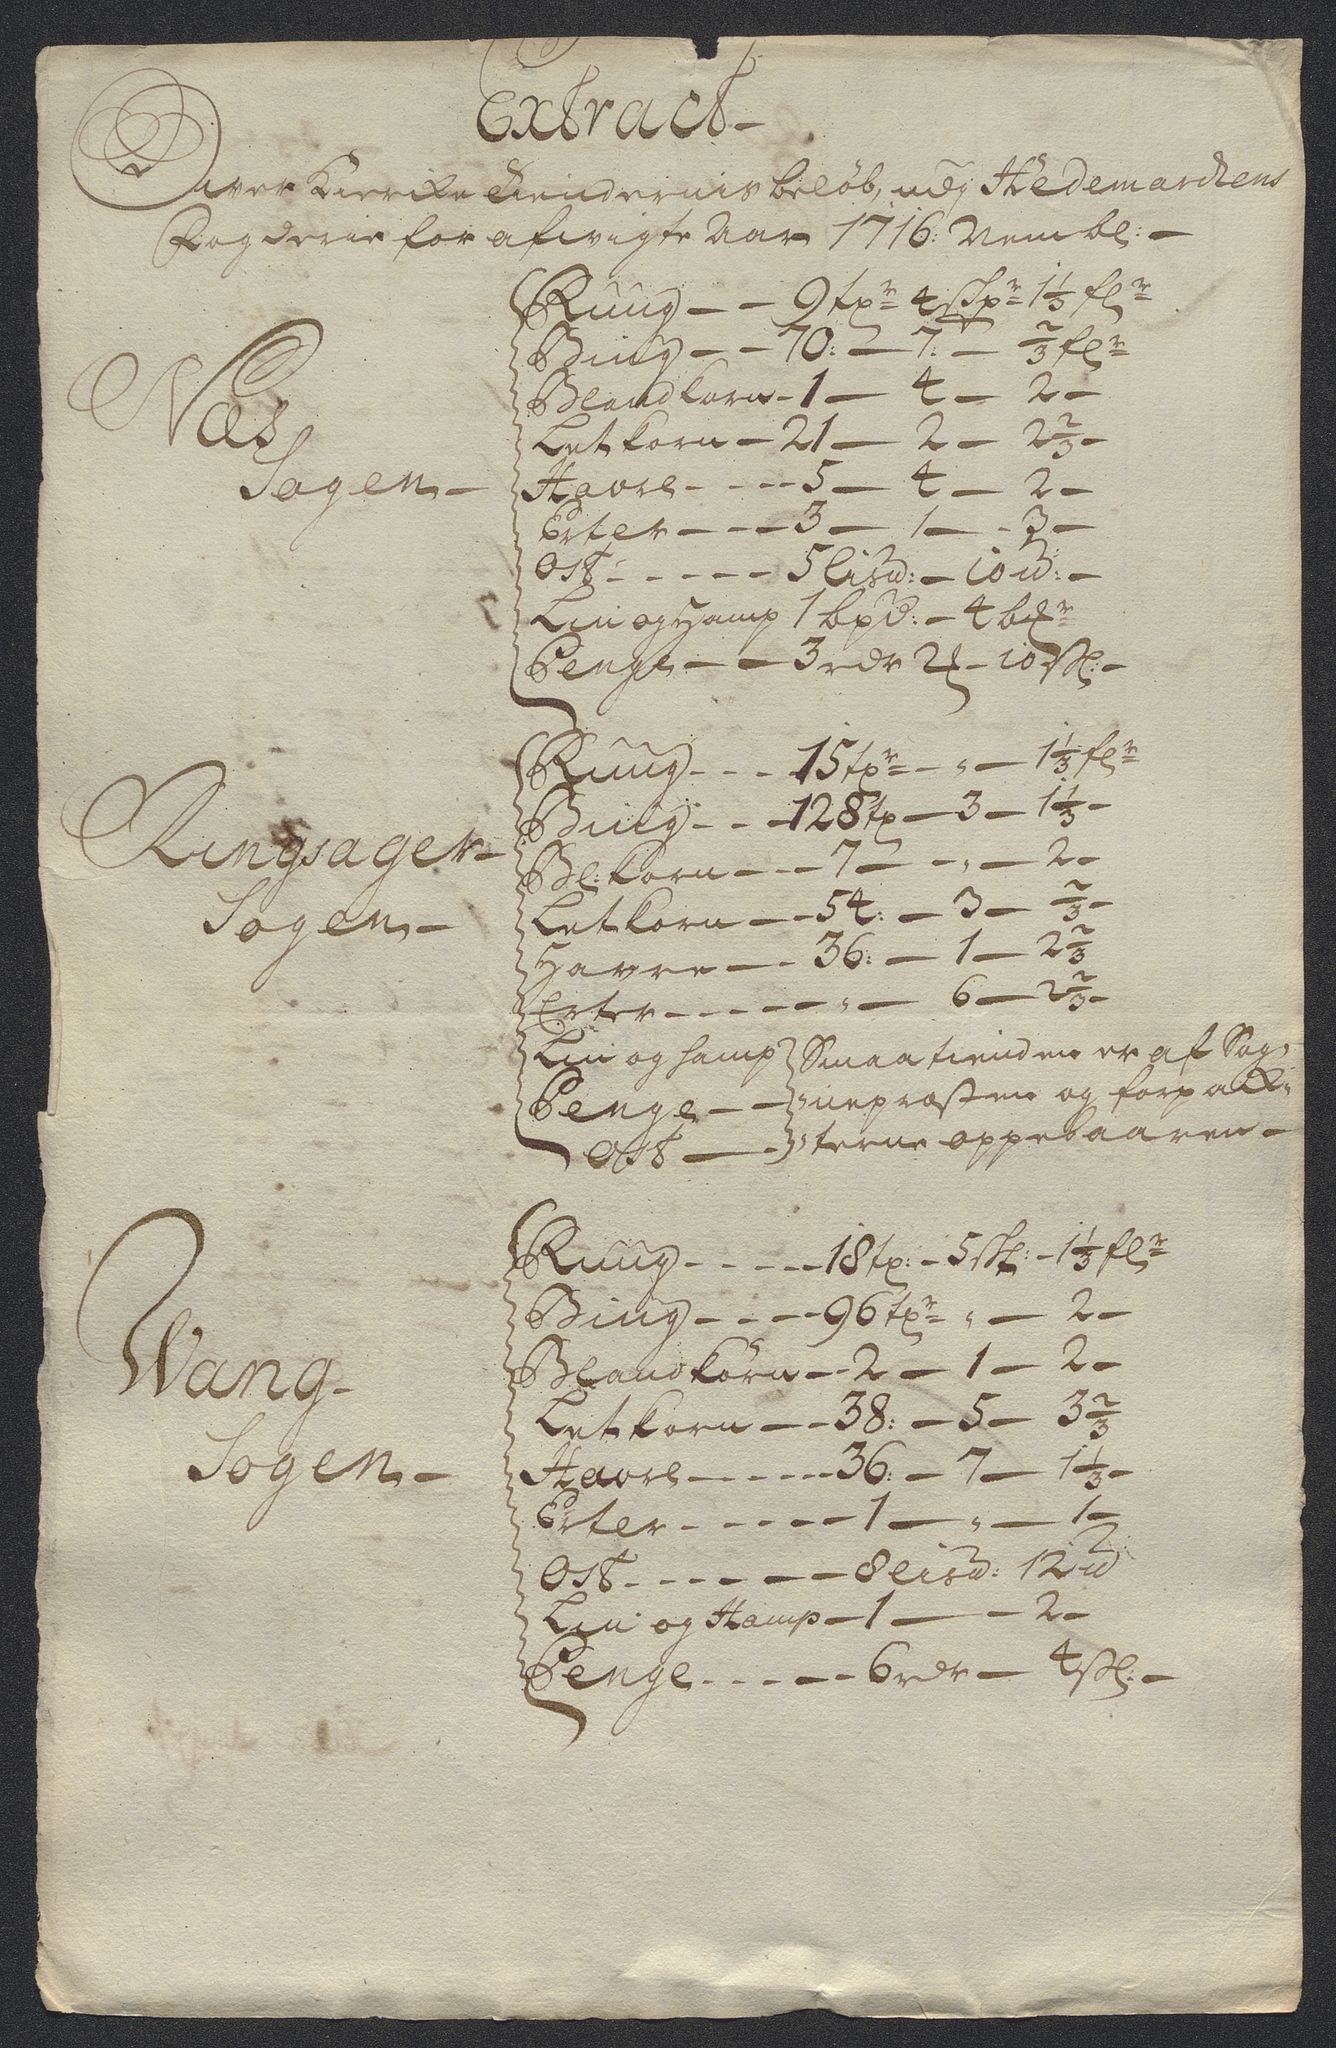 Extract
Over Kierke Tiendernis beløb, udj Hedemarchens
Fogderie for afvigte Aar 1716: Nembl: -
Næs
Sogen -
Ruug - - 9 tr 4 skpr 1 1/3 flr
Biug - - 70: - 7: - 2/3 flr
Blandkorn - 1 - 4 - 2 -
Letkorn - 21 - 2 - 2 2/3 -
Havre - - - - 5 - 4 - 2 -
Erter - - - 3 - 1 - - 3 -
Ost - - - - - 5 lisd: - 10 d: -
Lin og Hamp 1 bpd: - 4 bdr
Penge - - 3 rdr 2 - 10 sk: -
Ringsager -
Sogen -
Ruug - - - 15 tr - " - 1 1/3 flr
Biug - - - 128 t - 3 - 1 1/3 -
Bl: korn - - - 7 - - " - 2 -
Letkorn - - 54: - 3 - 2/3 -
Havre - - 36: - 1 - 2 2/3
Erter - - - - - " - 6 - 2 2/3 -
Lin og hamp } Smaatienden er af Sog-
Penge - - nepræsten og forpagt-
Ost - terne oppebaaren -
Wang -
Sogen -
Ruug - - - - 18 t: - 5 sk: - 1 1/3 flr
Biug - - - - 96 tr " - 2 -
Blandkorn - - 2 - 1 - 2 -
Letkorn - - 38: - 5 - 3 2/3
Havre - - - - - 36: - 7 - 1 1/3 -
Erter - - - - - 1 - " - 1 -
Ost - - - - - 8 lisd: 12 d
Lin og Hamp - 1 - - 2 -
Penge - - - - - 6 rdr - 4 sk: -